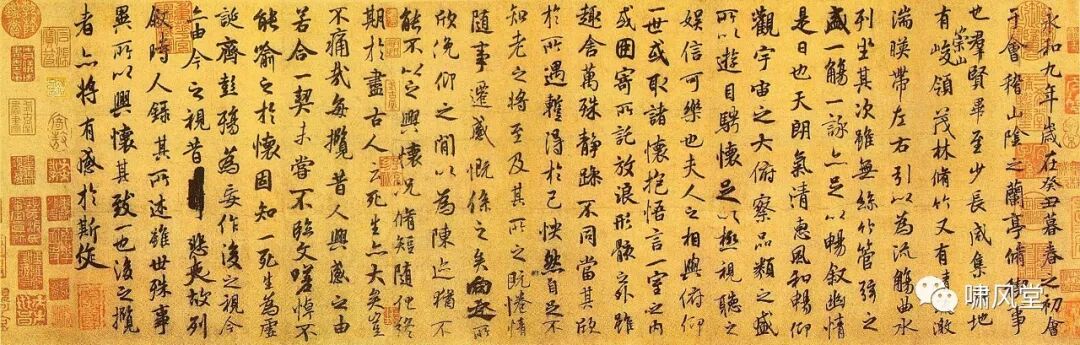 永和九年歲在癸丑暮春之初會
于會稽山陰之蘭亭脩禊事
也羣賢畢至少長咸集此地
有崇山峻領茂林脩竹又有清流激
湍暎帶左右引以為流觴曲水
列坐其次雖無絲竹管弦之
盛一觴一詠亦足以暢敘幽情
是日也天朗氣清惠風和暢仰
觀宇宙之大俯察品類之盛
所以遊目騁懷足以極視聽之
娛信可樂也夫人之相與俯仰
一世或取諸懷抱悟言一室之內
或因寄所託放浪形骸之外雖
趣舍萬殊靜躁不同當其欣
於所遇暫得於己怏然自足不
知老之將至及其所之既惓情
隨事遷感慨係之矣向之所
欣俛仰之間以為陳迹猶不
能不以之興懷況脩短隨化終
期於盡古人云死生亦大矣豈
不痛哉每攬昔人興感之由
若合一契未嘗不臨文嗟悼不
能喻之於懷固知一死生為虛
誕齊彭殤為妄作後之視今
亦由今之視昔悲夫故列
敘時人錄其所述雖世殊事
異所以興懷其致一也後之攬
者亦將有感於斯文
啸风堂